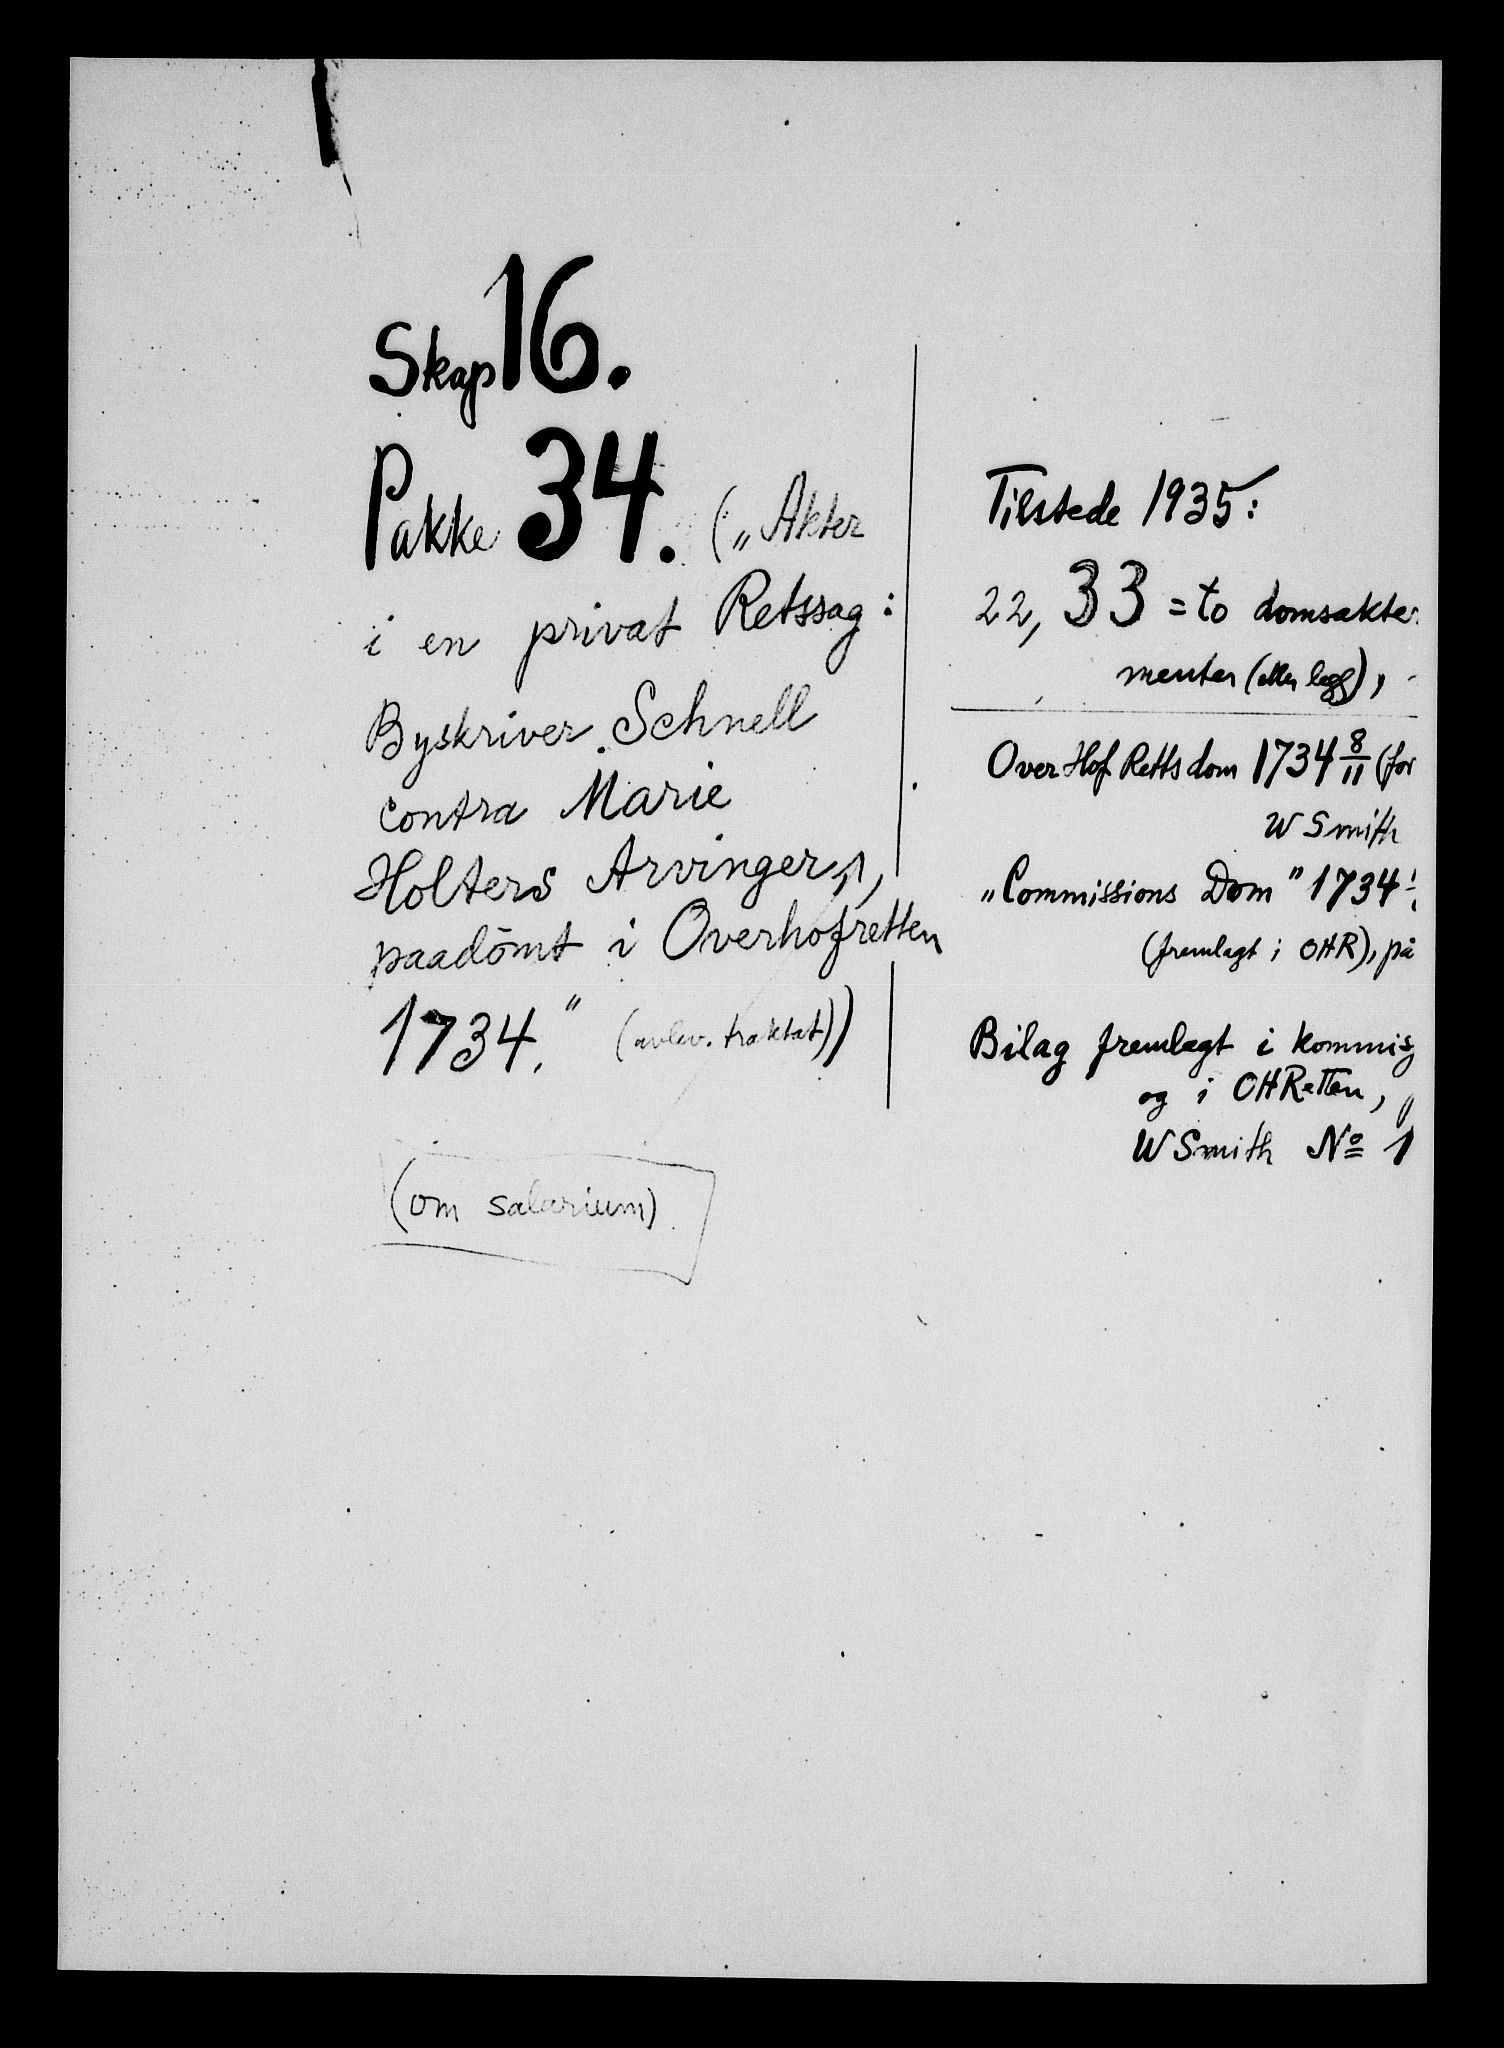 Skap 16.
Pakke 34. („Akter
i en privat Retssag:
Byskriver Schnell
contra Marie
Holters Arvinger,
paadömt i Overhofretten
1734.” (avlev. traktat))
(om salarium)
Tilstede 1935:
22, 33 = to domsakter
menter (eller legg),
Over Hof Retts dom 1734 8/11 (for
W Smith
„Commissions Dom” 1734
(fremlagt i OHR), på
Bilag fremlagt i kommis
og i OHRetten,
W Smith No 1